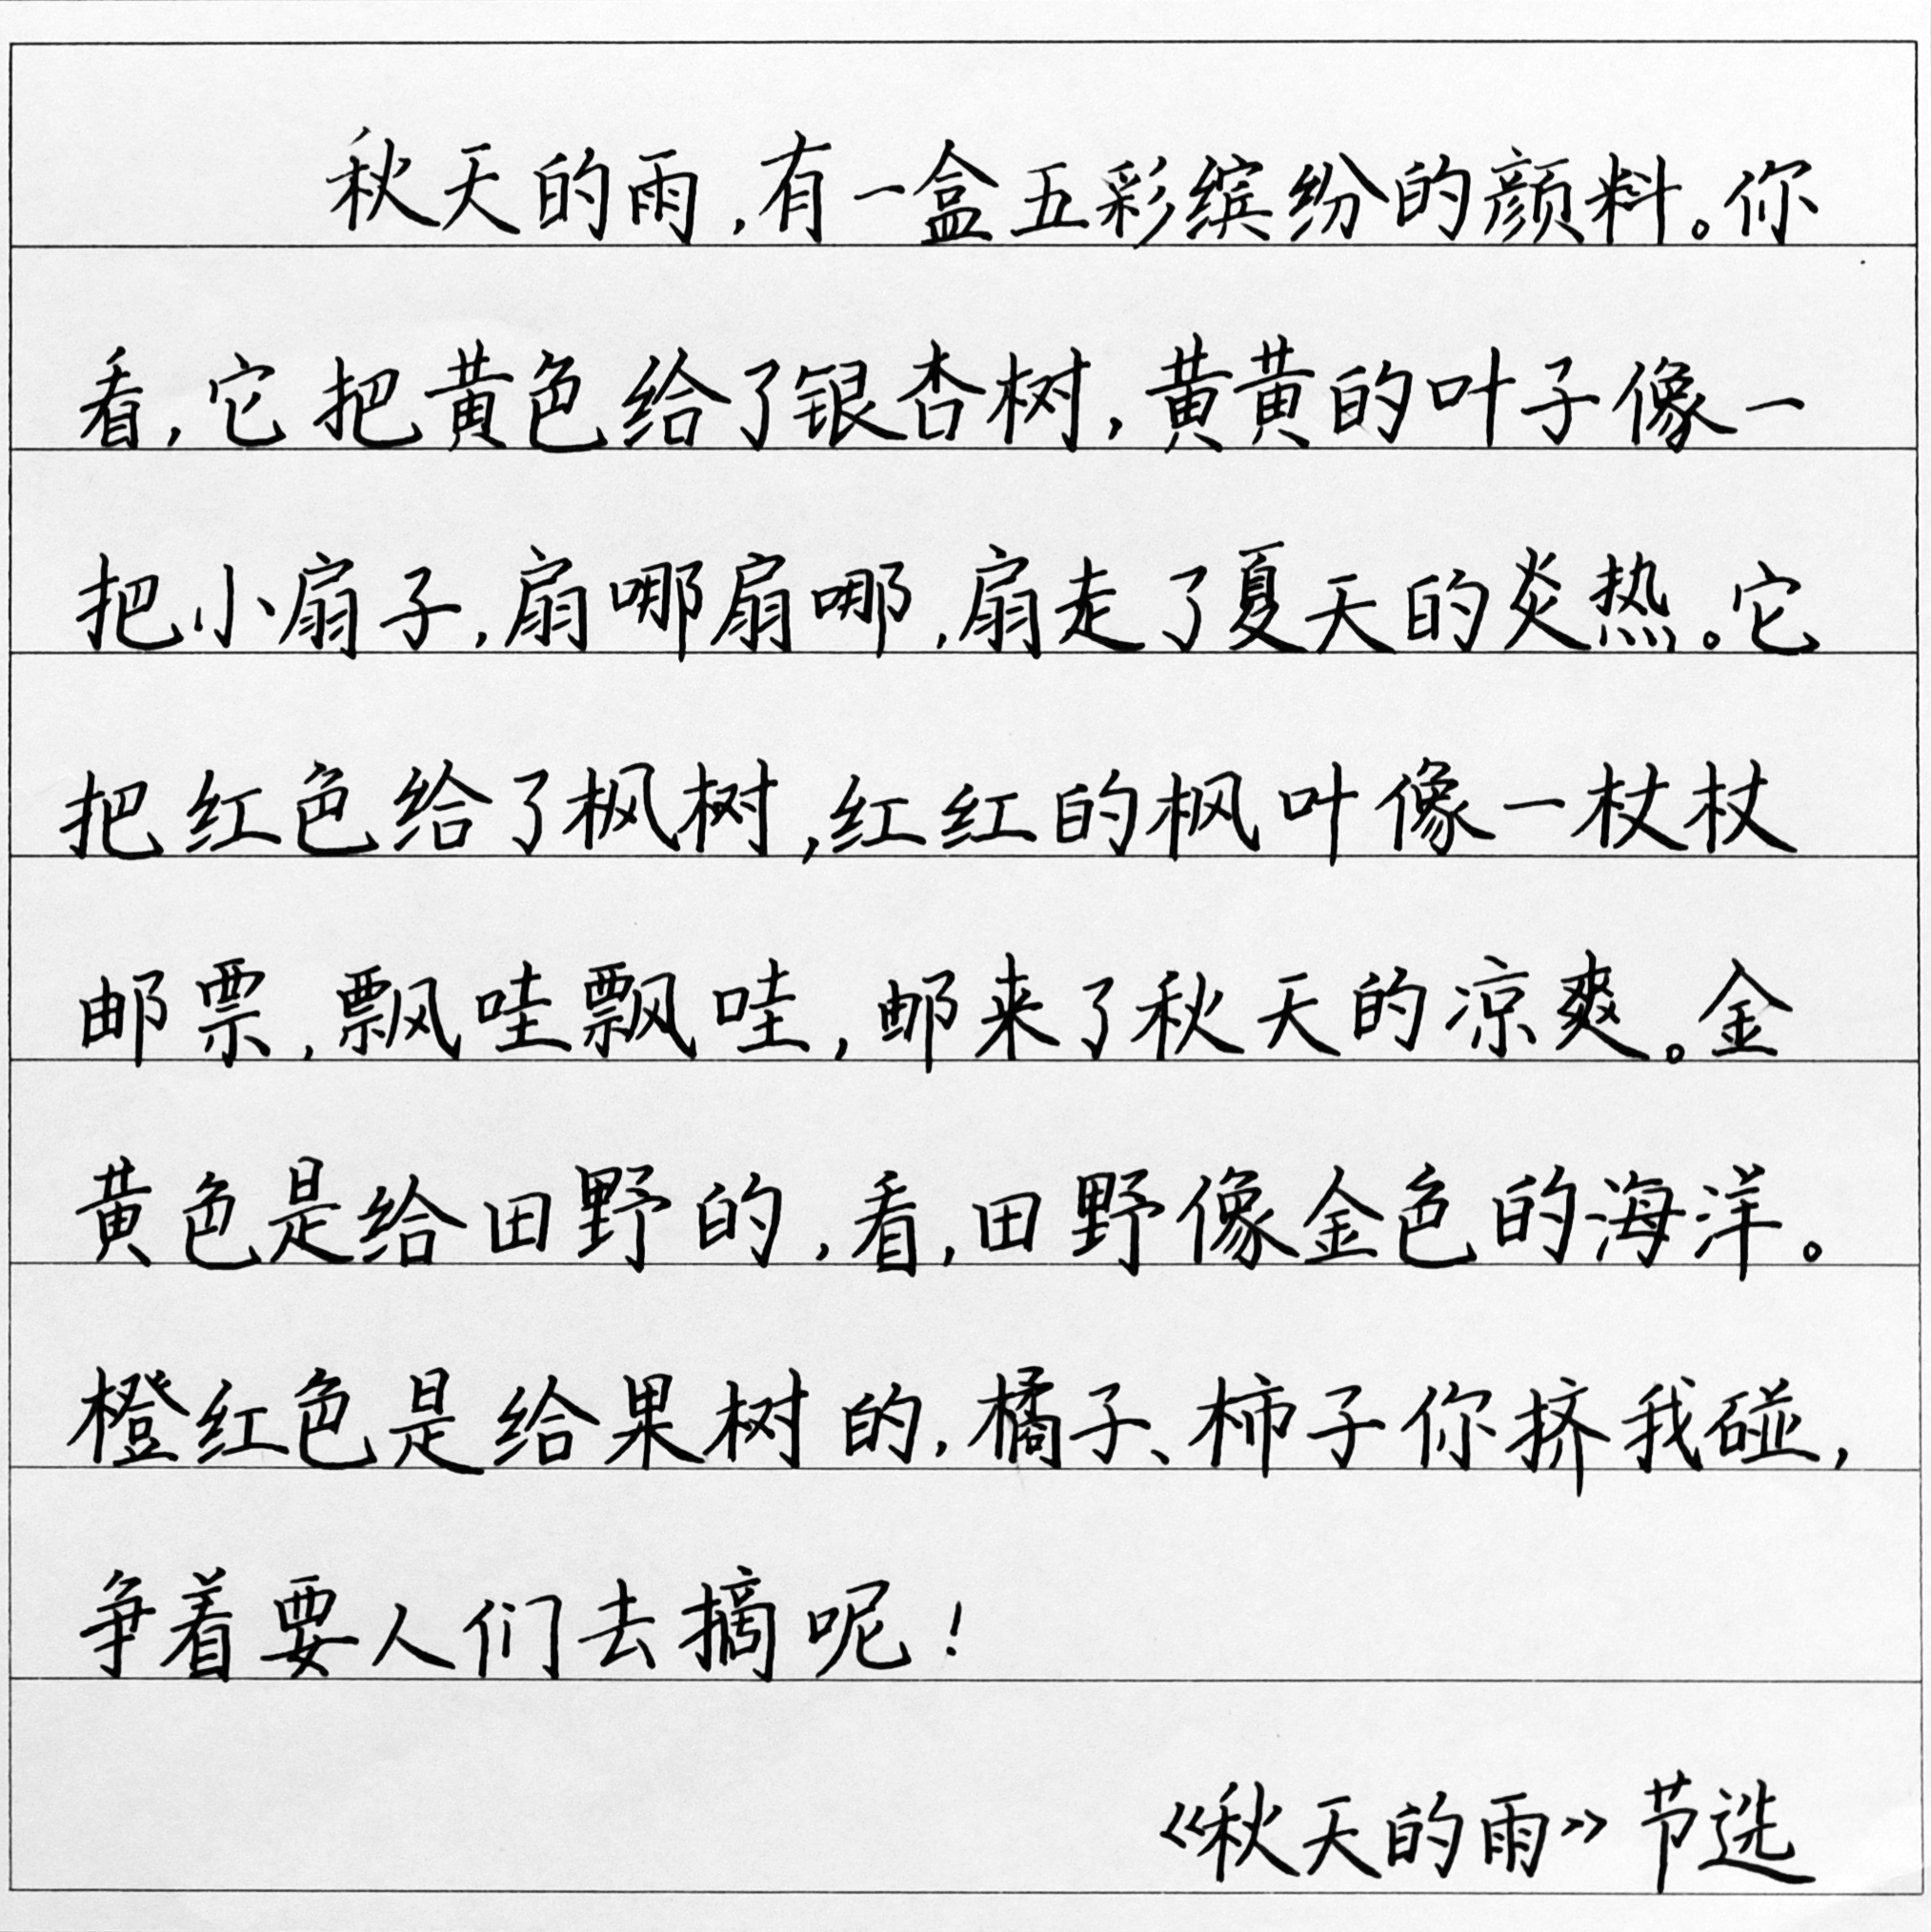 秋天的雨,有一盒五彩缤纷的颜料。你
看,它把黄色给了银杏树,黄黄的叶子像一
把小扇子,扇哪扇哪,扇走了夏天的炎热。它
把红色给了枫树,红红的枫叶像一杖杖
邮票,飘哇飘哇,邮来了秋天的凉爽。金
黄色是给田野的,看,田野像金色的海洋。
橙红色是给果树的,橘子、柿子你挤我碰,
争着要人们去摘呢!
《秋天的雨》节选